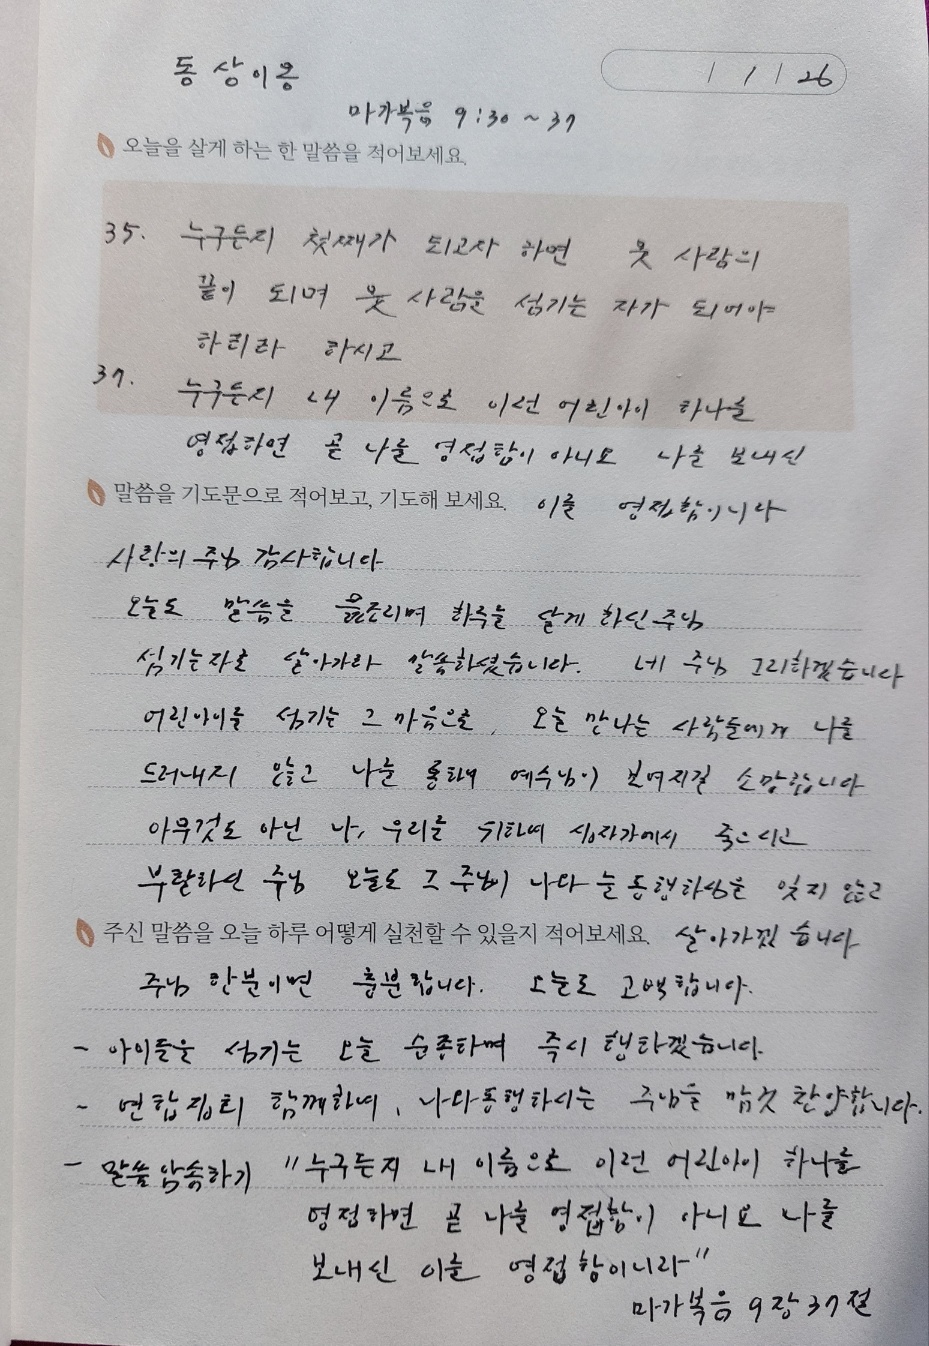 동상이몽
1 1 26
마가복음 9:30~37
오늘을 살게 하는 한 말씀을 적어보세요.
35. 누구든지 첫째가 되고자 하면 뭇 사람의
끝이 되며 뭇 사람을 섬기는 자가 되어야
하리라 하시고
37. 누구든지 내 이름으로 이런 어린아이 하나를
영접하면 곧 나를 영접함이 아니요 나를 보내신
이를 영접함이니라
말씀을 기도문으로 적어보고, 기도해 보세요.
사랑의 주님 감사합니다
오늘도 말씀을 읊조리며 하루를 살게 하신 주님
섬기는자로 살아가라 말씀하셨습니다. 네 주님 그리하겠습니다
어린아이를 섬기는 그 마음으로, 오늘 만나는 사람들에게 나를
드러내지 않고 나를 통하여 예수님이 보여지길 소망합니다
아무것도 아닌 나, 우리를 위하여 십자가에서 죽으시고
부활하신 주님 오늘도 그 주님이 나와 늘 동행하심을 잊지 않고
살아가겠습니다
주신 말씀을 오늘 하루 어떻게 실천할 수 있을지 적어보세요.
주님 한분이면 충분합니다. 오늘도 고백합니다.
- 아이들을 섬기는 오늘 순종하며 즉시 행하겠습니다.
- 연합집회 함께하며, 나와동행하시는 주님을 맘껏 찬양합니다.
- 말씀 암송하기 "누구든지 내 이름으로 이런 어린아이 하나를
영접하면 곧 나를 영접함이 아니요 나를
보내신 이를 영접함이니라"
마가복음 9장 37절